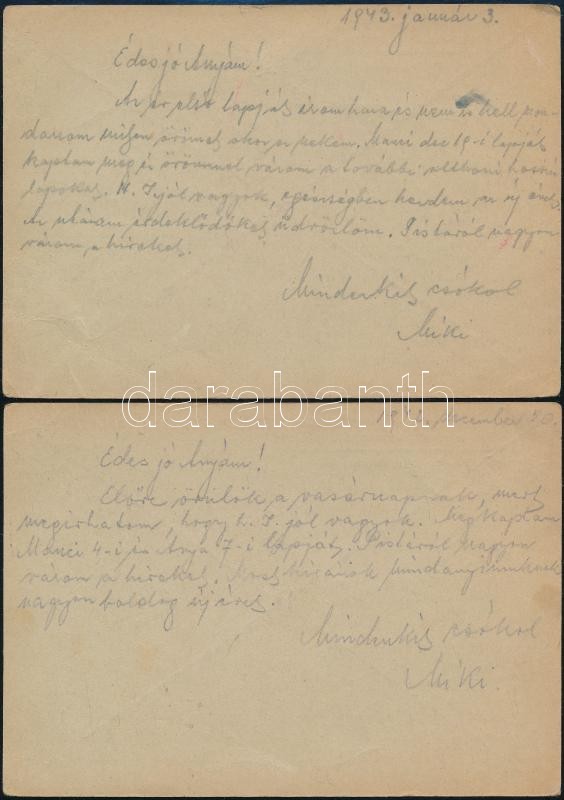 1943. január 3.
Édes jó Anyám!
Az év első lapját írom haza és nem is kell mon-
danom milyen örömet okoz ez nekem. Manci dec 19-i lapját
kaptam meg és örömmel várom a további otthoni hosszú
lapokat. H. I. jól vagyok, egészségben kezdem az új évet.
Az utánam érdeklődőket üdvözlöm. Pistáról nagyon
várom a híreket.
Mindenkit csókol
Miki
darabanth
.com
1942. december 20.
Édes jó Anyám!
Előre örülök a vasárnapnak, mert
megírhatom, hogy h. I. jól vagyok. Megkaptam
Manci 4-i és Anya 7-i lapját. Pistáról nagyon
várom a híreket. Most kívánok mindannyiunknak
nagyon boldog új évet.
Mindenkit csókol
Miki.